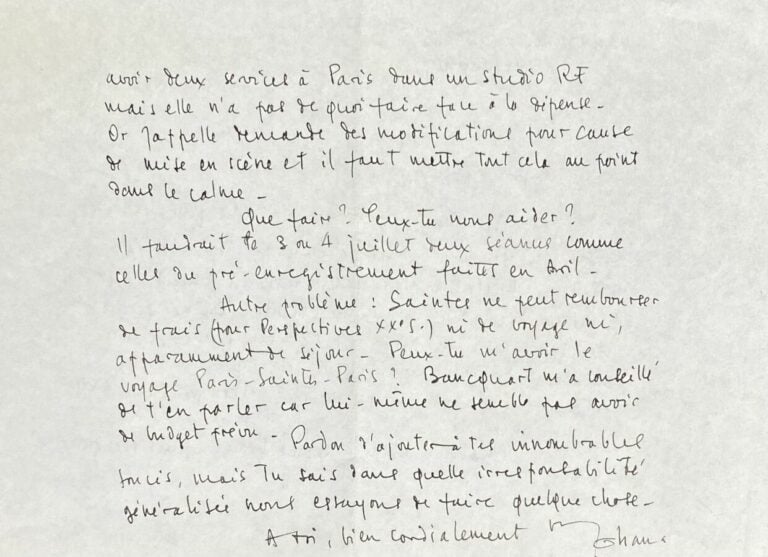 avoir deux services à Paris dans un studio RF
mais elle n'a pas de quoi faire face à la dépense -
Or Jappelle demande des modifications pour cause
de mise en scène et il faut mettre tout cela au point
dans le calme -
Que faire ? Peux-tu nous aider ?
Il faudrait le 3 ou 4 juillet deux séances comme
celles du pré-enregistrement faites en Avril -
Autre problème : Saintes ne peut rembourser
de frais (pour Perspectives XXe S.) ni de voyage ni,
apparamment de séjour - Peux-tu m'avoir le
voyage Paris-Saintes-Paris ? Bancquart m'a conseillé
de t'en parler car lui-même ne semble pas avoir
de budget prévu - Pardon d'ajouter à tes innombrables
soucis, mais Tu sais dans quelle irresponsabilité
généralisée nous essayons de faire quelque chose -
A toi, bien cordialement